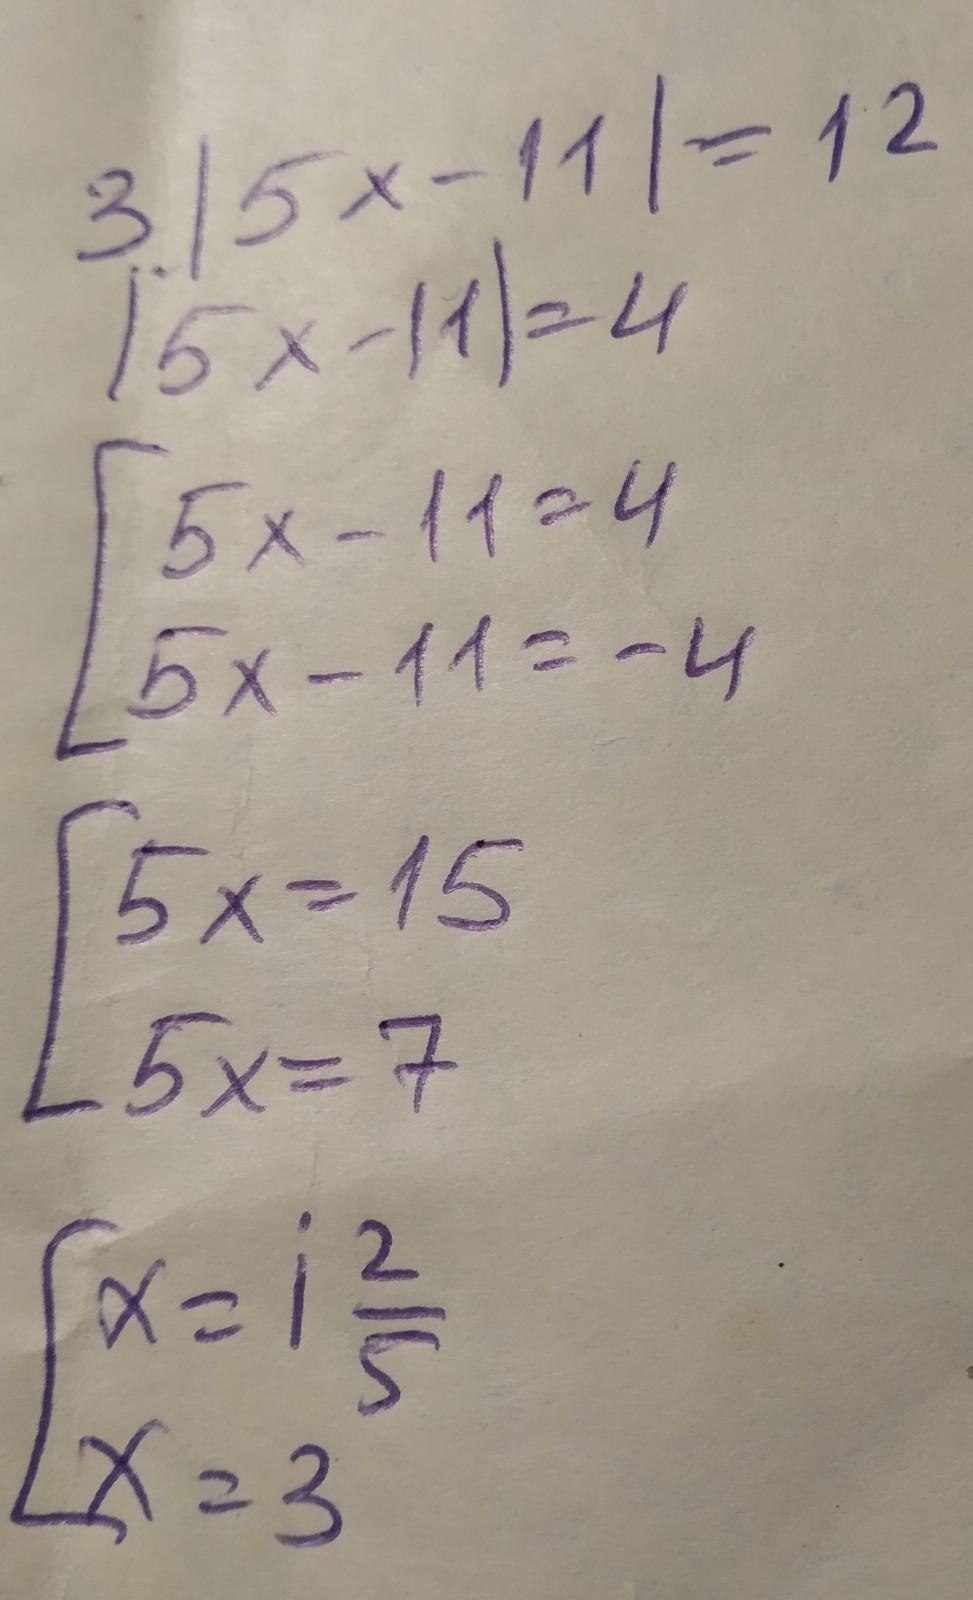 3·|5x-11|=12
|5x-11|=4
5x-11=4
5x-11=-4
5x=15
5x=7
x=1 2/5
x=3